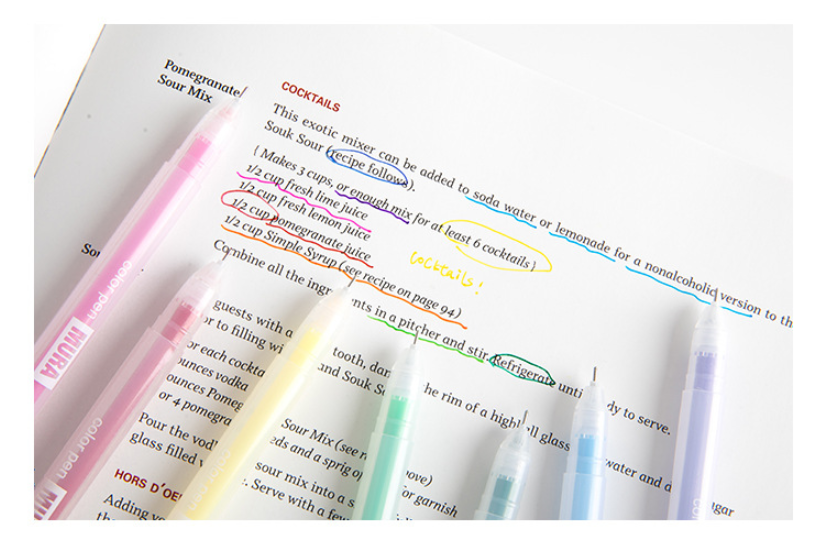 Pomegranate
Sour Mix
COCKTAILS
This exotic mixer can be added to soda water or lemonade for a nonalcoholic version to th
Souk Sour (recipe follows).
( Makes 3 cups, or enough mix for at least 6 cocktails )
1/2 cup fresh lime juice
1/2 cup fresh lemon juice
1/2 cup pomegranate juice
1/2 cup Simple Syrup (see recipe on page 94)
cocktails!
Combine all the ingr nts in a pitcher and stir. Refrigerate unti dy to serve.
Sou
guests with a tooth, dan the rim of a highball glass water and d
or to filling wi and Souk So gar
or each cockta
ounces vodka
ounces Pomeg Sour Mix (see r ove)
or 4 pomegra eds and a sprig o for garnish
Pour the vod sour mix into a s
glass filled . Serve with a few
HORS D'OE
Adding yo
the
color pen MURA
color pen MU
color pen